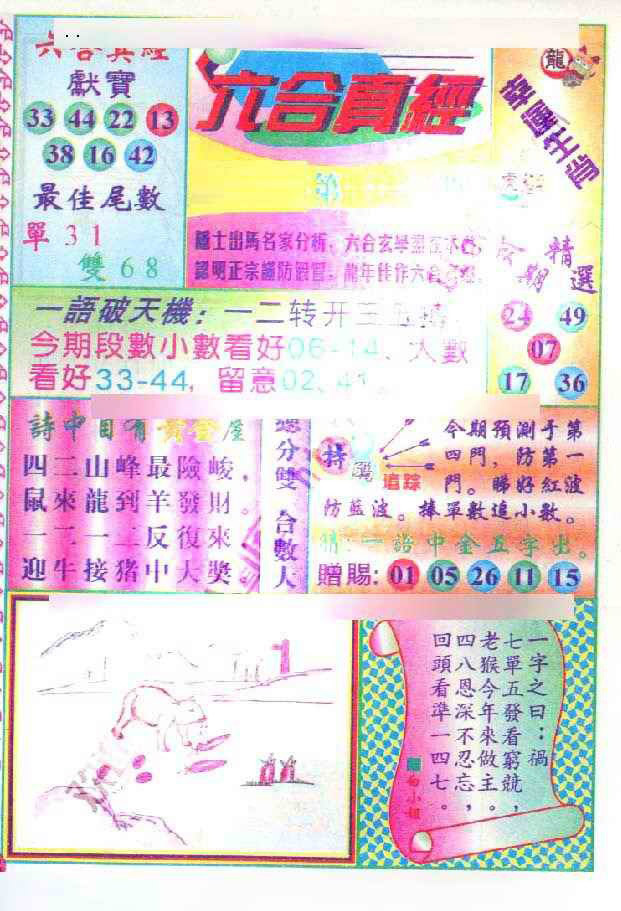 六合真經
獻寶
33 44 22 13
38 16 42
最佳尾數
單 3 1
雙 6 8
六合真經
龍
隱士出馬名家分析,六合玄學盡在
認明正宗謹防
龍年佳作六合
精選
期
24 49
07
17 36
一語破天機:一二转开三五
今期段數小數看好06-14、大數
看好33-44,留意02、41。
詩中自有黃金屋
四二山峰最險峻,
鼠來龍到羊發財。
一二一二反復來
迎牛接猪中大獎。
總分雙 合數大
特
追踪
今期預測于第
四門,防第一
門。睇好紅波
防藍波。捧單數追小數。
猜:一語中金五字出。
贈賜: 01 05 26 11 15
1
一字之曰:禍
七單五發看窮競,
老猴今年來做主。
四八恩深不忍忘,
回頭看準一四七。
白小姐